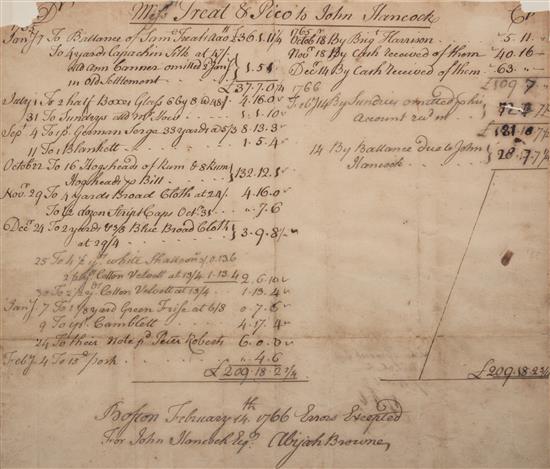 Dr Messrs Treat & Pico to John Hancock Cr
Janry 7 To Ballance of Saml Treat's Acct £36.1.11¾
To 4 yards Capuchin Silk at
Ann Conner omitted
in Old Settlement 1.5.1
£37.7.0¾
July 1 To 2 half Boxes Glass 6 by 8 4.16.0
31 To Sundrys 1.1.10
Sep 4 To ps German Serge 33 yards a 5/3 8.13.3
11 To 1 Blankett 1.5.4
October 22 To 16 Hogsheads of Rum & 8 Rum
Hogsheads Bill 132.12.1
Novr 29 To 4 yards Broad Cloth at 24/ 4.16.0
To 1/2 dozn Stript Caps Octr 31 " 7.6
Decr 24 To 2 yards Blue Broad Cloth
at 29/4 3.9.8
25 To white Shalloon 0.13.6
Cotton Velvett at 13/4 1.13.4 2.6.10
30 To 2½ yds Cotton Velvett at 13/4 1.13.4
Janry 7 To 1 1/8 yard Green Frise at 6/8 0.7.6
9 To ps Camblett 4.17.4
24 To their Note pd Peter Roberts 6.0.0
Febry 4 To Pork " 4.6
£209.18.2¾
1765
Octobr 18 By Brig Harrison 5.11
Novr 18 By Cash received of them 40.16
Decr 14 By Cash received of them 63.
£109.7
1766
Feb 14 By Sundries omitted John
Account
£181.18.7½
14 By Ballance due to John
Hancock 28.
£209.18.2¾
Boston February 14th 1766 Errors Excepted
For John Hancock Esqr Abijah Browne